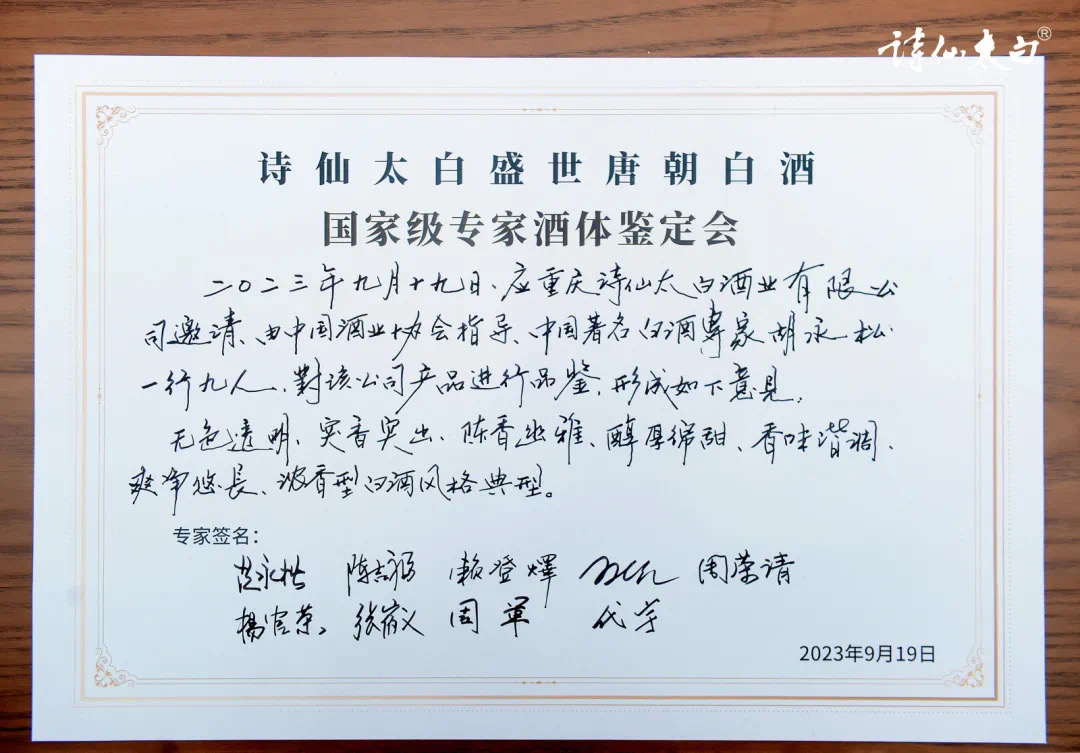 诗仙太白®
诗仙太白盛世唐朝白酒
国家级专家酒体鉴定会
二〇二三年九月十九日、应重庆诗仙太白酒业有限公
司邀请、由中国酒业协会指导、中国著名白酒专家胡永松
一行九人、對该公司产品进行品鉴,形成如下意见:
无色透明、窖香突出、陈香幽雅、醇厚绵甜、香味谐调、
爽净悠長、浓香型白酒风格典型。
专家签名:
胡永松 赖登燡 周荣清
杨官荣 张宿义 周军
2023年9月19日